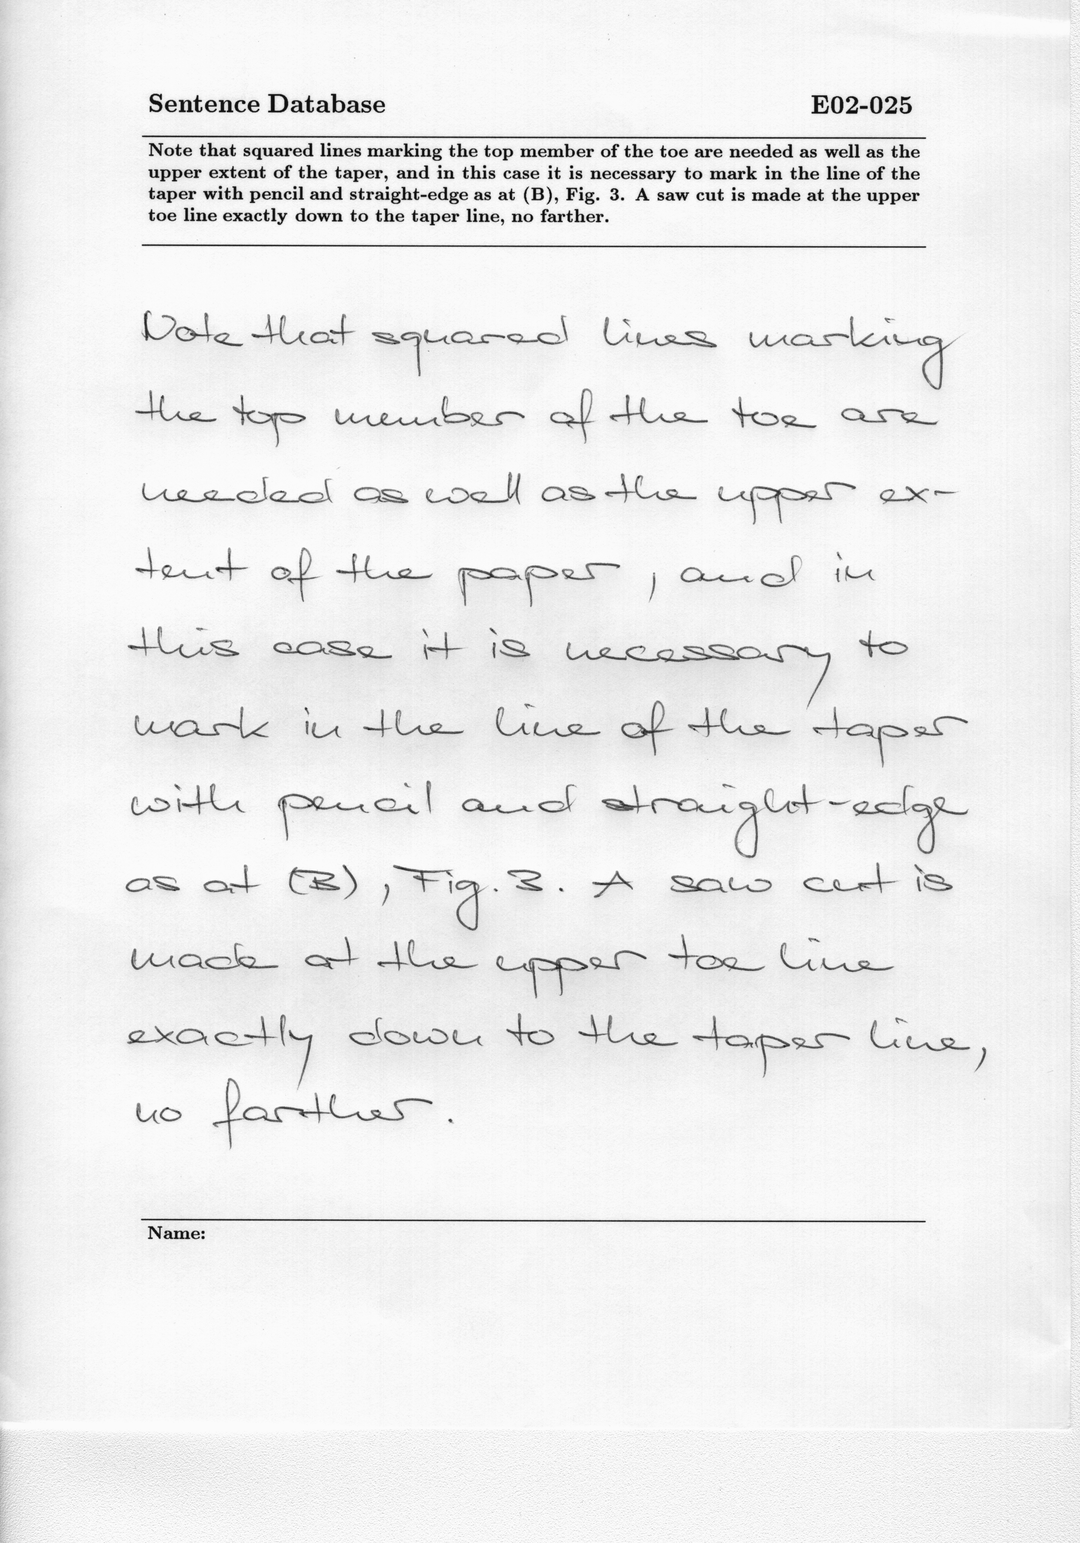 Sentence Database E02-025
Note that squared lines marking the top member of the toe are needed as well as the
upper extent of the taper, and in this case it is necessary to mark in the line of the
taper with pencil and straight-edge as at (B), Fig. 3. A saw cut is made at the upper
toe line exactly down to the taper line, no farther.
Note that squared lines marking
the top member of the toe are
needed as well as the upper ex-
tent of the paper, and in
this case it is necessary to
mark in the line of the taper
with pencil and straight-edge
as at (B), Fig. 3. A saw cut is
made at the upper toe line
exactly down to the taper line,
no farther.
Name: